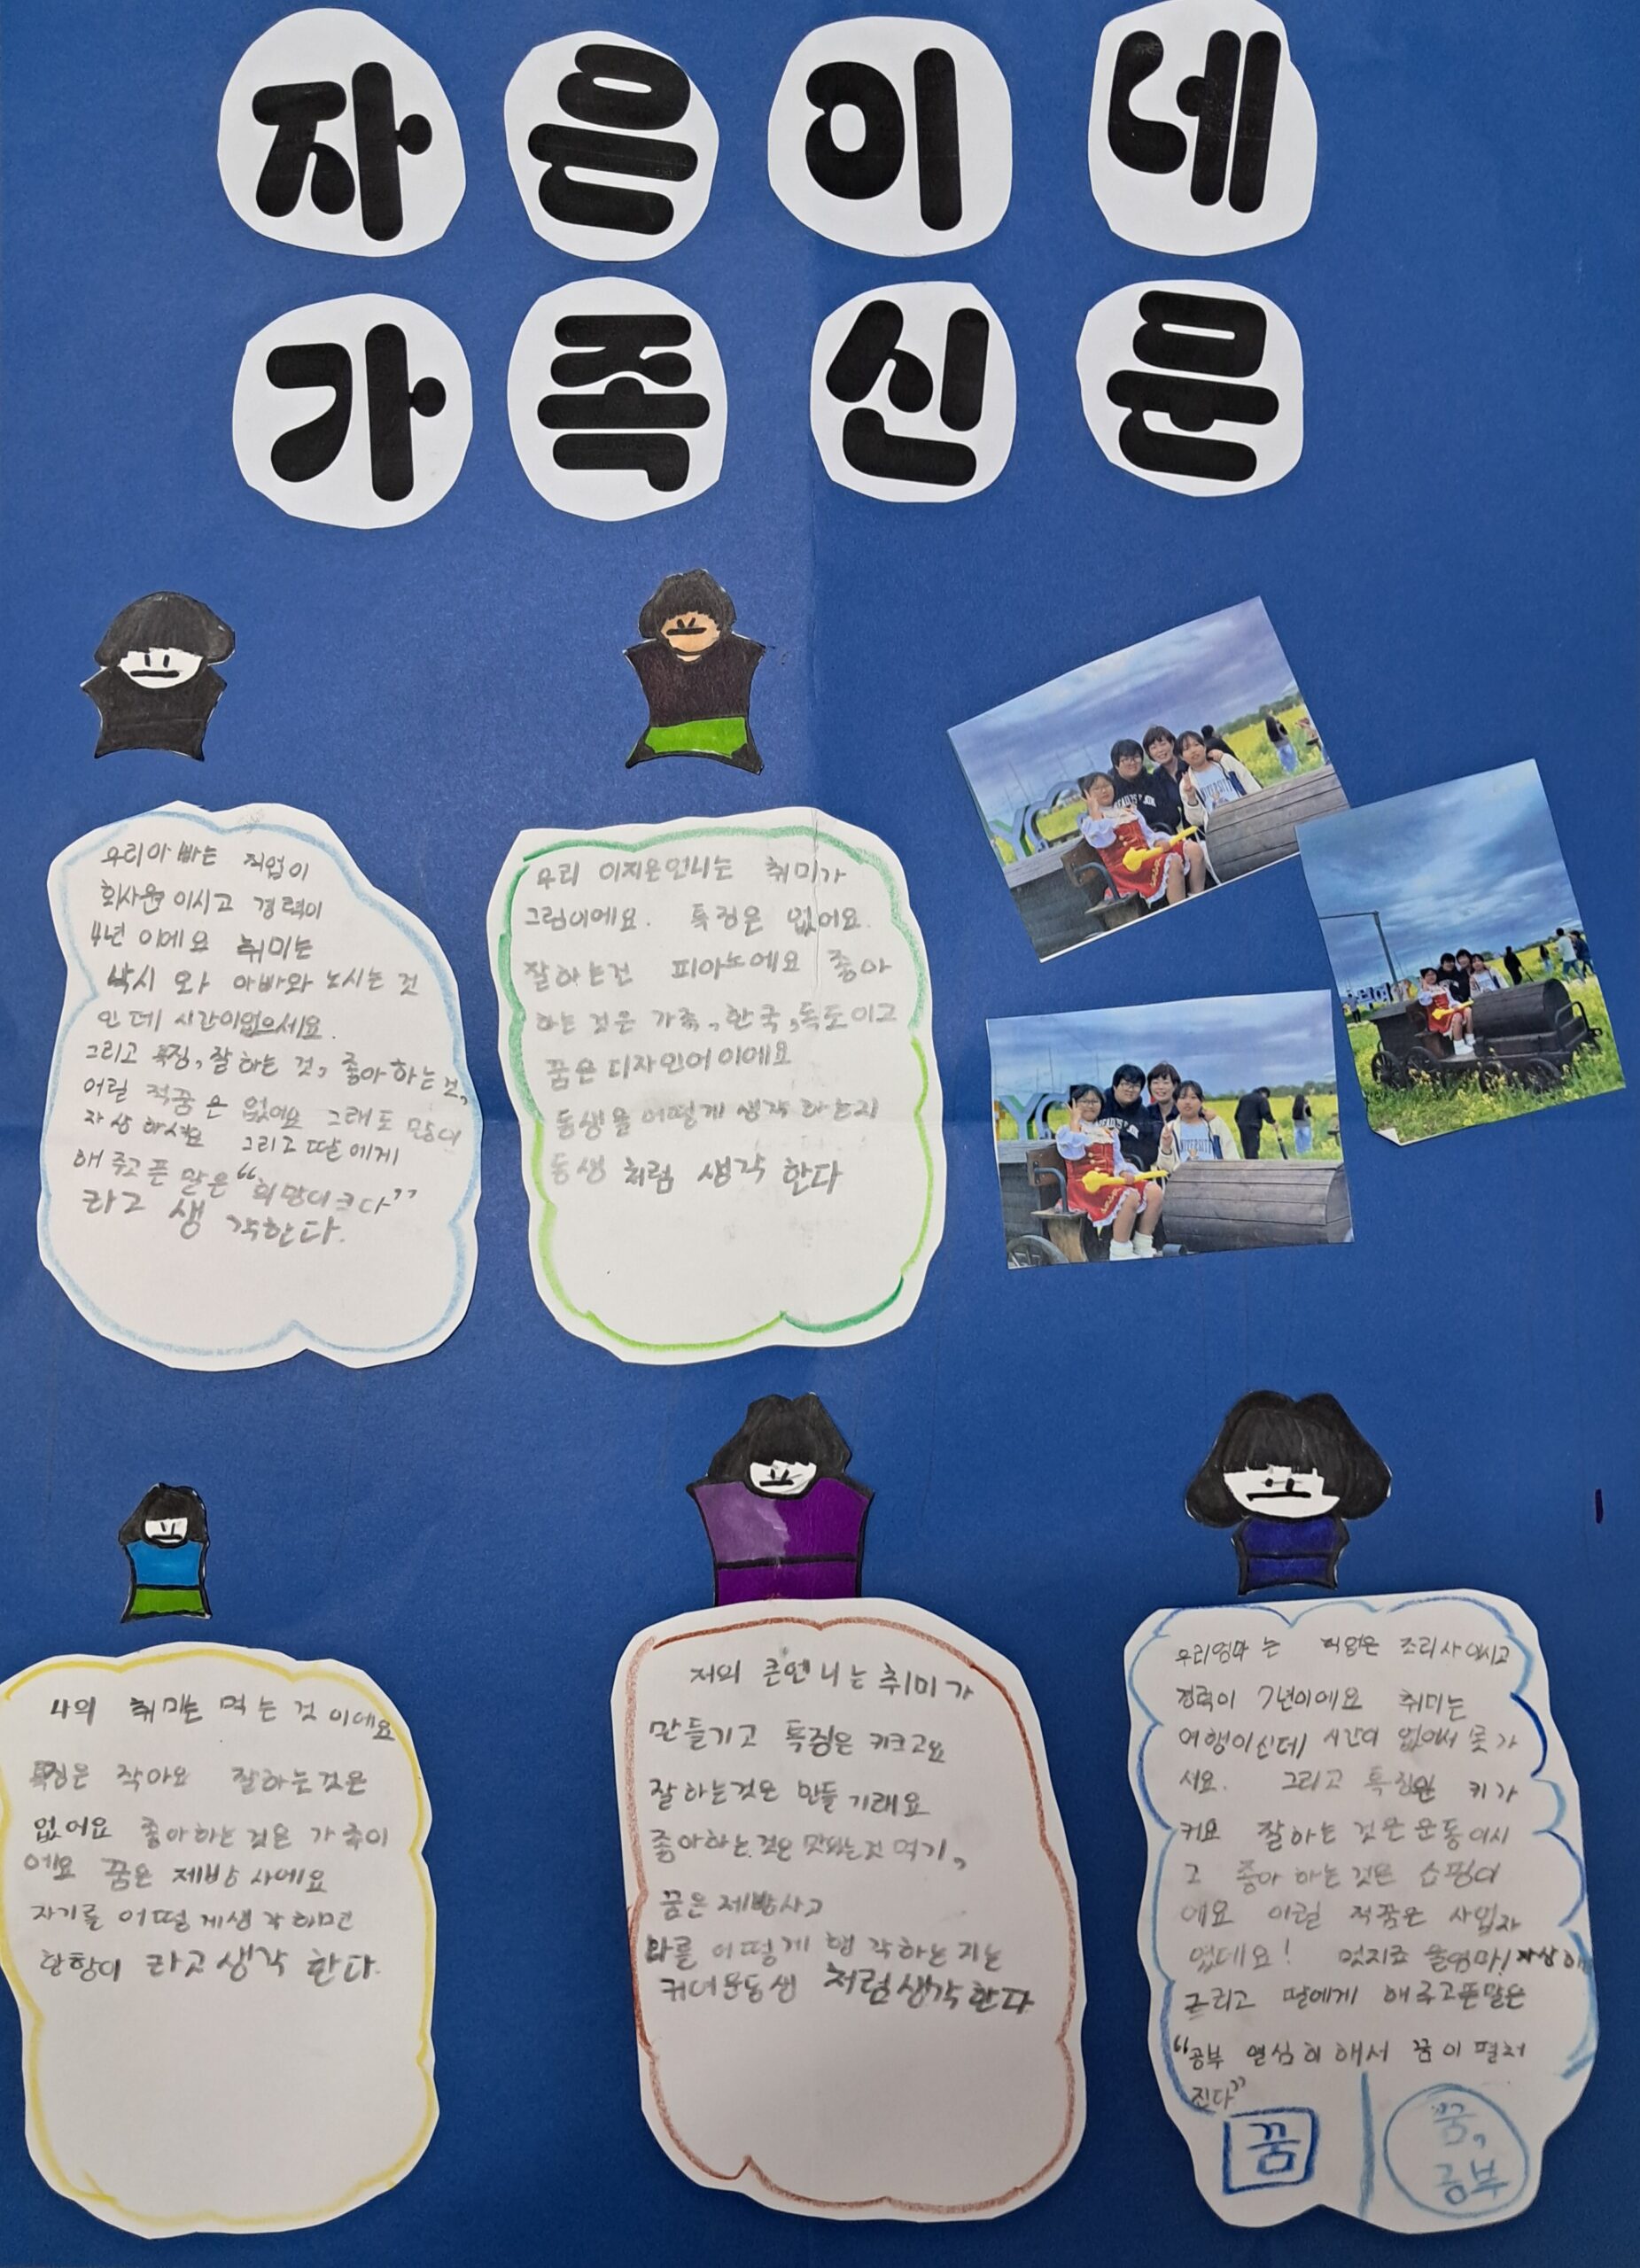 자은이네
가족신문
우리아빠는 직업이
회사원이시고 경력이
4년 이에요 취미는
낚시 와 아빠와 노시는 것
인데 시간이없으세요.
그리고 특징, 잘하는 것, 좋아하는것,
어릴 적꿈은 없어요 그래도
자상하세요 그리고 딸에게
해주고픈 말은 "희망이크다"
라고 생각한다.
우리 이지은언니는 취미가
그림이에요. 특징은 없어요.
잘하는건 피아노에요 좋아
하는 것은 가족, 한국, 독도이고
꿈은 디자인어이에요
동생을 어떻게 생각 하는지
동생 처럼 생각 한다
나의 취미는 먹는 것이에요
특징은 작아요 잘하는것은
없어요 좋아하는것은 가족이
에요 꿈은 제빵사에요
자기를 어떻게생각하면
항항이 라고생각 한다.
저의 큰언니는 취미가
만들기고 특징은 키크고요
잘하는것은 만들기래요
좋아하는것은 맛있는것 먹기,
꿈은 제빵사고
나를 어떻게 생각하는지는
귀여운동생 처럼생각한다
우리엄마는 직업은 조리사이시고
경력이 7년이에요 취미는
여행이신데 시간이 없어서 못가
세요. 그리고 특징은 키가
커요 잘하는 것은운동이시
고 좋아하는것은 쇼핑이
에요 어릴 적꿈은 사업자
였데요! 멋지죠 울엄마! 자상해
그리고 딸에게 해주고픈말은
"공부 열심히해서 꿈이 펼처
진다"
꿈
꿈,
공부